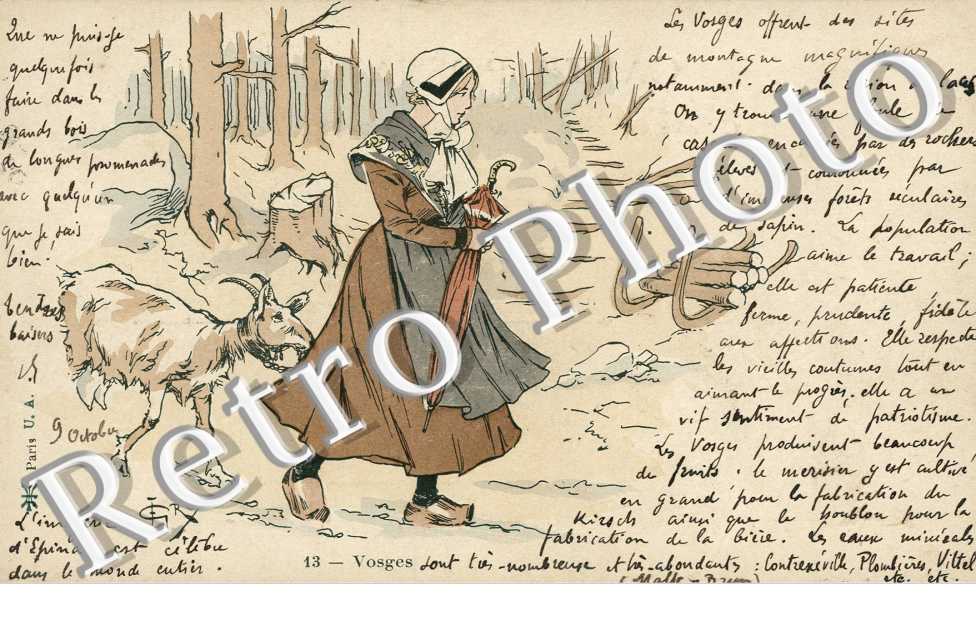 Que ne puis-je
quelquefois
faire dans les
grands bois
de longues promenades
avec quelqu'un
que je sais
bien.
tendres
baisers
9 October
Paris U. A.
L'imagerie
d'Epinal est célèbre
dans le monde entier.
Les Vosges offrent des sites
de montagne magnifiques
notamment dans la région des lacs
On y trouve une foule de
cascades encadrées par des rochers
élevés et couronnées par
d'immenses forêts séculaires
de sapin. La population
aime le travail;
elle est patiente
ferme, prudente, fidèle
aux affections. Elle respecte
les vieilles coutumes tout en
aimant le progrès, elle a un
vif sentiment de patriotisme.
Les Vosges produisent beaucoup
de fruits. le merisier y est cultivé
en grand pour la fabrication du
Kirsch ainsi que le houblon pour la
fabrication de la bière. Les eaux minérales
13 — Vosges sont très-nombreuse et très-abondants : Contrexéville, Plombières, Vittel
(Malte-Brun) etc. etc.
Retro Photo